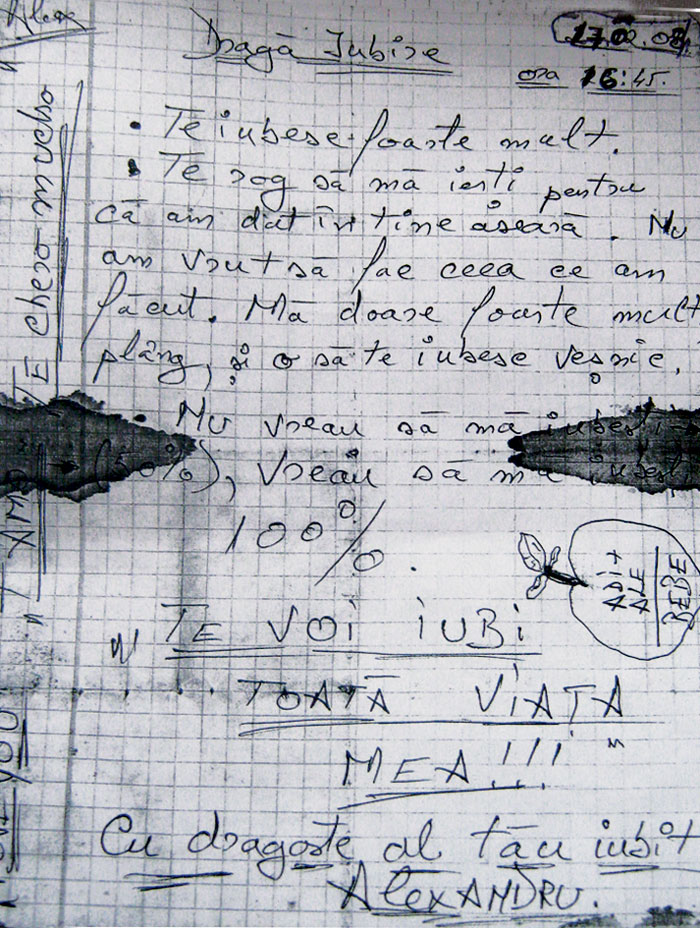 Alex
Dragă Iubire
17.02.08
ora 16:45.
• Te iubesc foarte mult.
• Te rog să mă ierți pentru
că am dat în tine aseară. Nu
am vrut să fac ceea ce am
făcut. Mă doare foarte mult
plâng, și o să te iubesc veșnic.
• Nu vreau să mă iubești
(50%), vreau să mă iubești
100%.
" TE VOI IUBI
TOATĂ VIAȚA
MEA!!! "
Cu dragoste al tău iubit
ALEXANDRU.
ADI +
ALE
BEBE
TE chero mucho